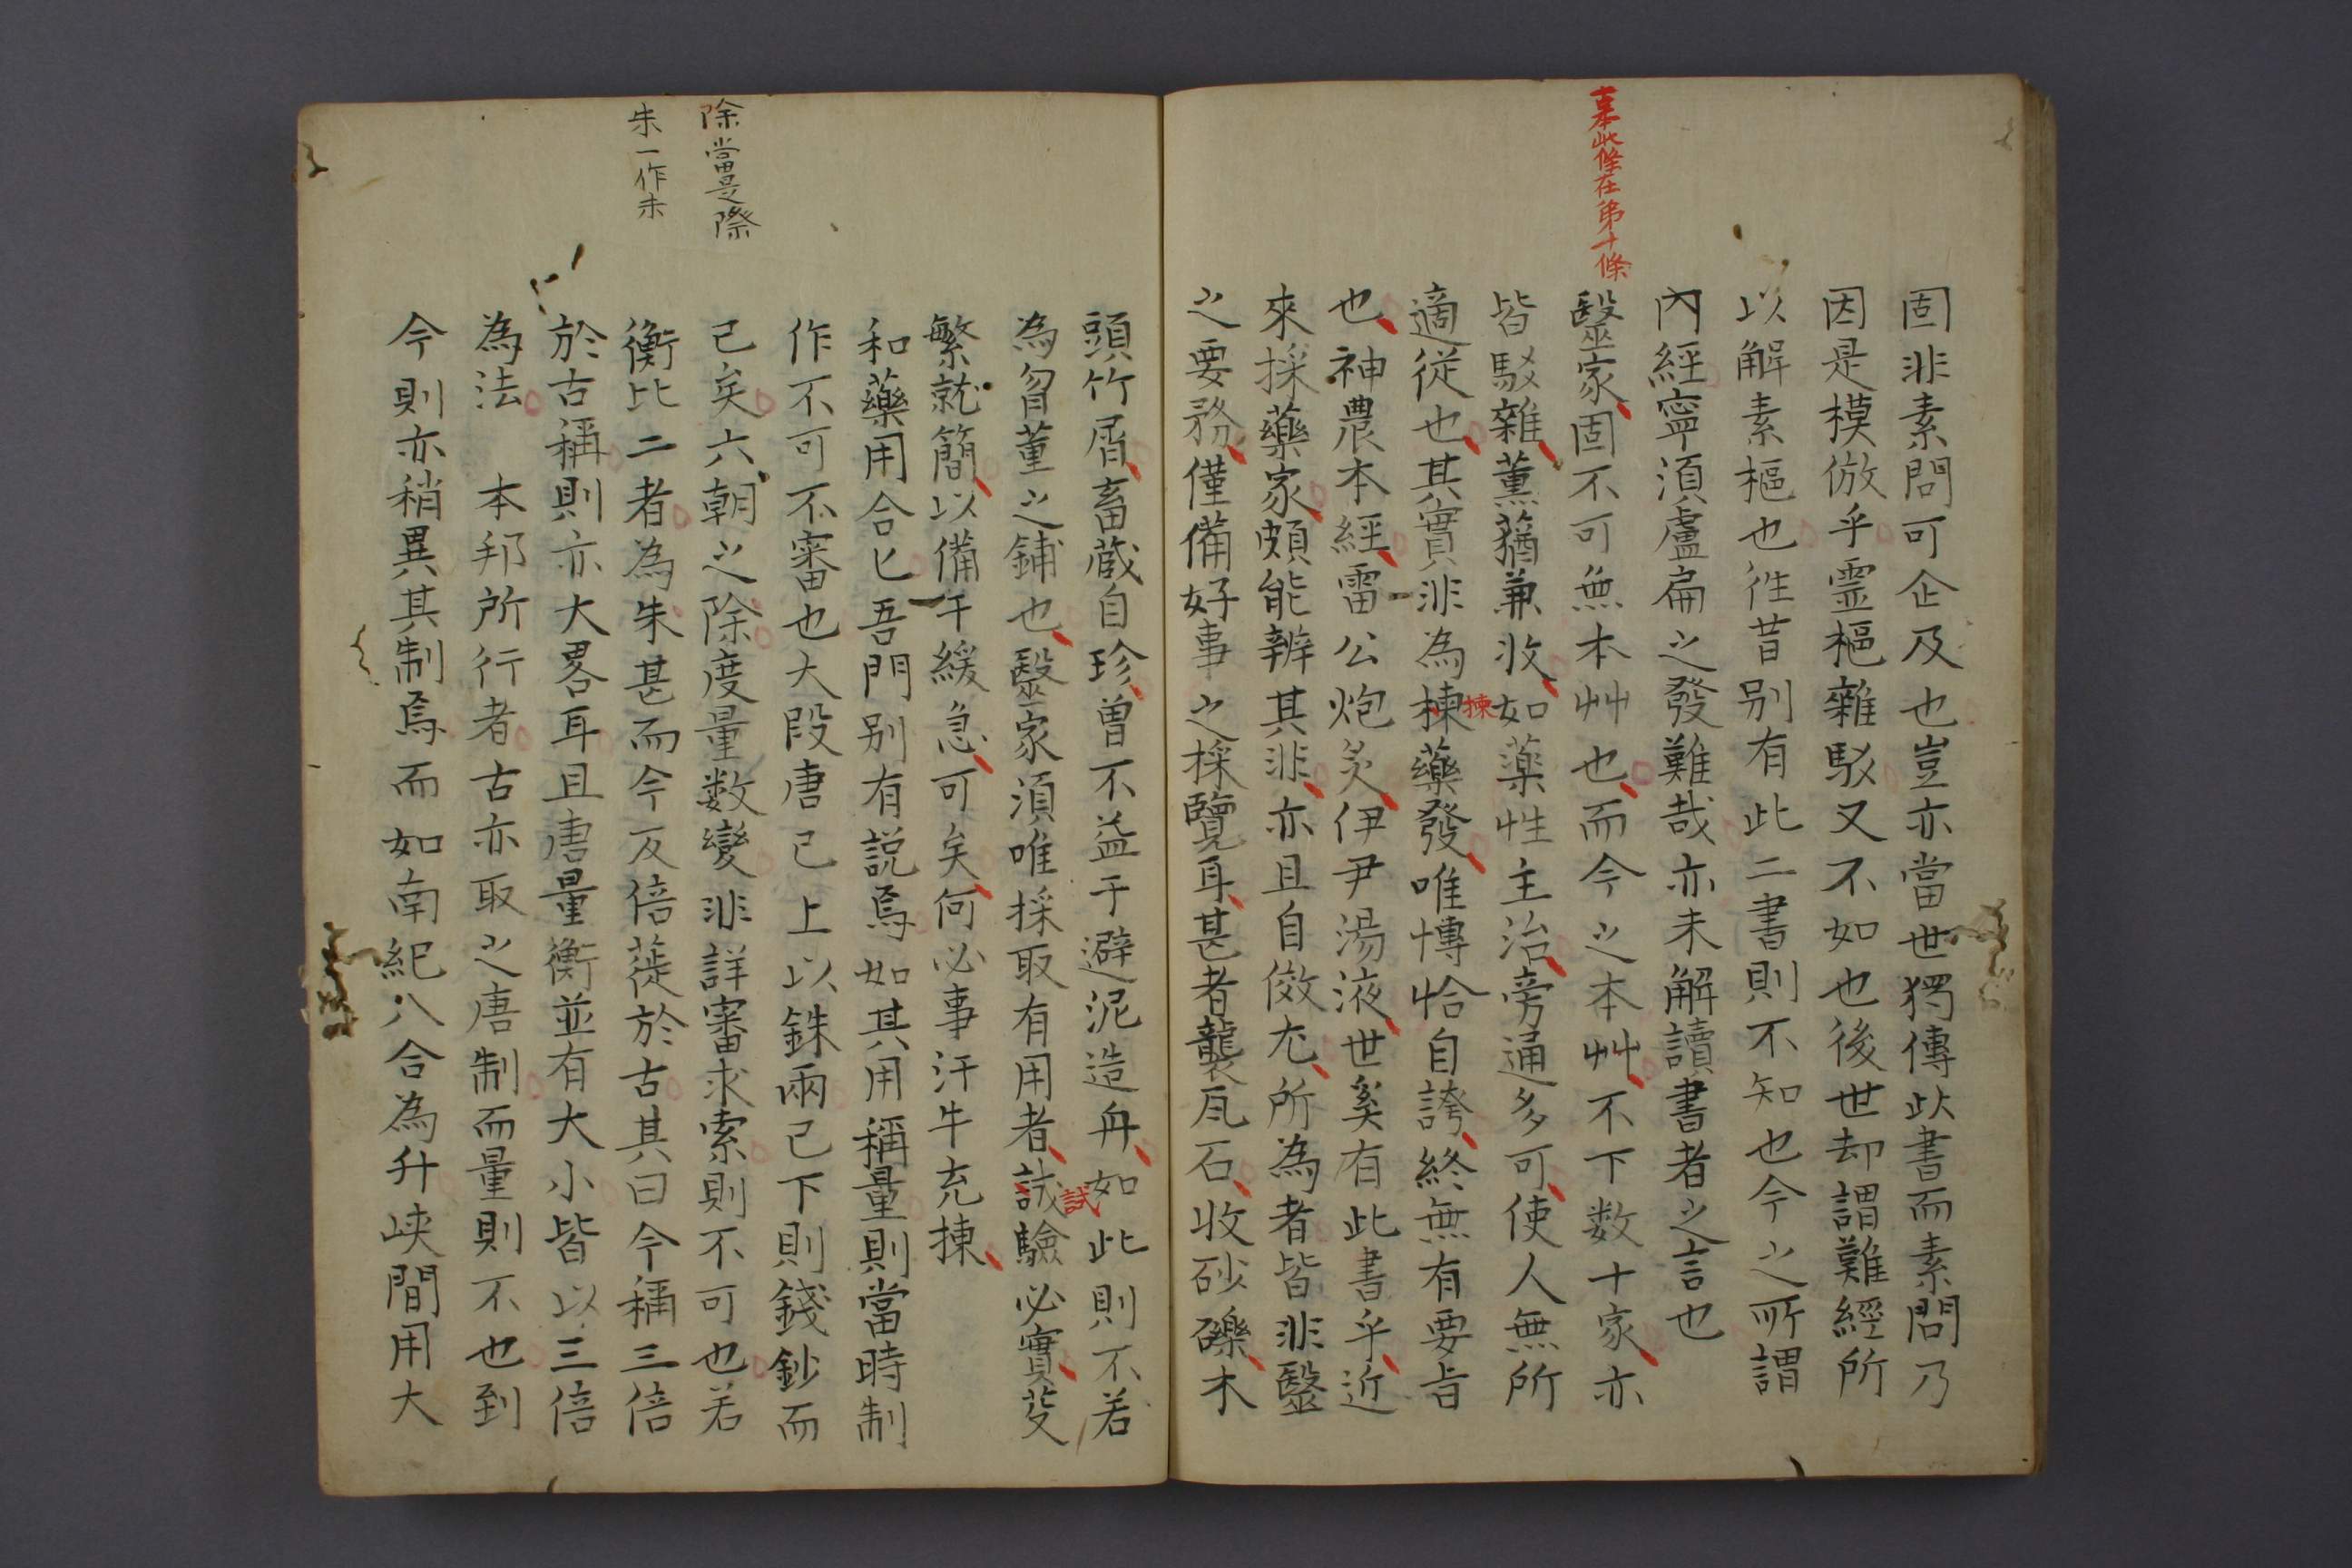 固非素問可企及也豈亦當世獨傳此書而素問乃
因是模倣乎霊樞雜駁又不如也後世却謂難經所
以解素樞也徃昔别有此二書則不知也今之所謂
內經寧湏盧扁之發難哉亦未解讀書者之言也
此條在弟十條
毉家固不可無本艸也而今之本艸不下数十家亦
皆駁雜薰蕕兼收如薬性主治旁通多可使人無所
適従也其實非為楝藥發唯愽恰自誇終無有要旨
揀
也神農本經雷公炮炙伊尹湯液世奚有此書乎近
來採藥家頗能辨其非亦且自傚尤所為者皆非毉
之要務僅備好事之採覽耳甚者襲瓦石收砂礫木
頭竹屑畜蔵自珍曽不益于避泥造舟如此則不若
試
為曶董之鋪也毉家湏唯採取有用者誠驗必實芟
繁就簡以備于緩急可矣何必事汗牛充揀
和藥用合匕吾門别有説焉如其用稱量則當時制
作不可不審也大段唐已上以銖兩已下則錢鈔而
除當是際
已矣六朝之除度量数變非詳審求索則不可也若
朱一作未
衡比二者為朱甚而今反倍蓰於古其曰今稱三倍
於古稱則亦大畧耳且唐量衡並有大小皆以三倍
為法　本邦所行者古亦取之唐制而量則不也到
今則亦稍異其制焉而如南紀八合為升峡間用大